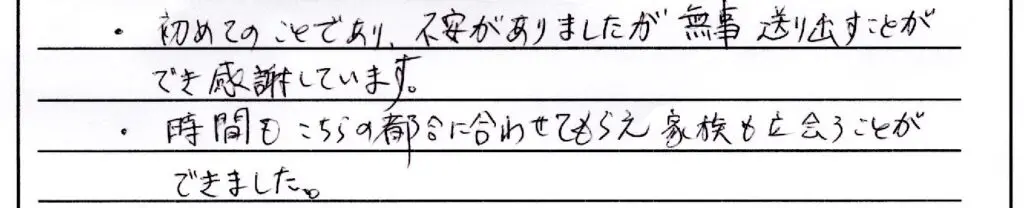 ・初めてのことであり、不安がありましたが無事送り出すことが
でき感謝しています。
・時間もこちらの都合に合わせてもらえ家族も立会うことが
できました。